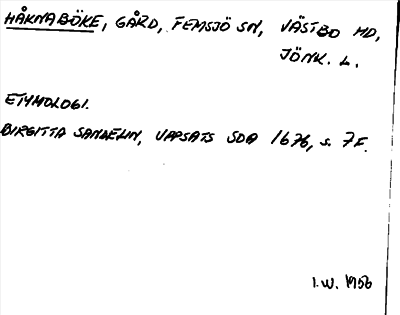 HÅKNABÖKE, GÅRD, FEMSJÖ SN, VÄSTBO HD,
JÖNK. L.
ETYMOLOGI.
BIRGITTA SANDELIN, UPPSATS SOA 1676, s. 7 F.
I.W. 1956